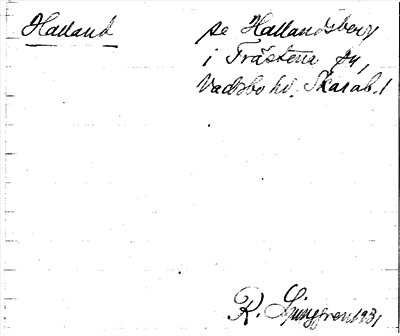 Halland
se Hallandsberg
i Trästena sn,
Vadsbo hd. Skarab. l
R. Ljunggren 1931